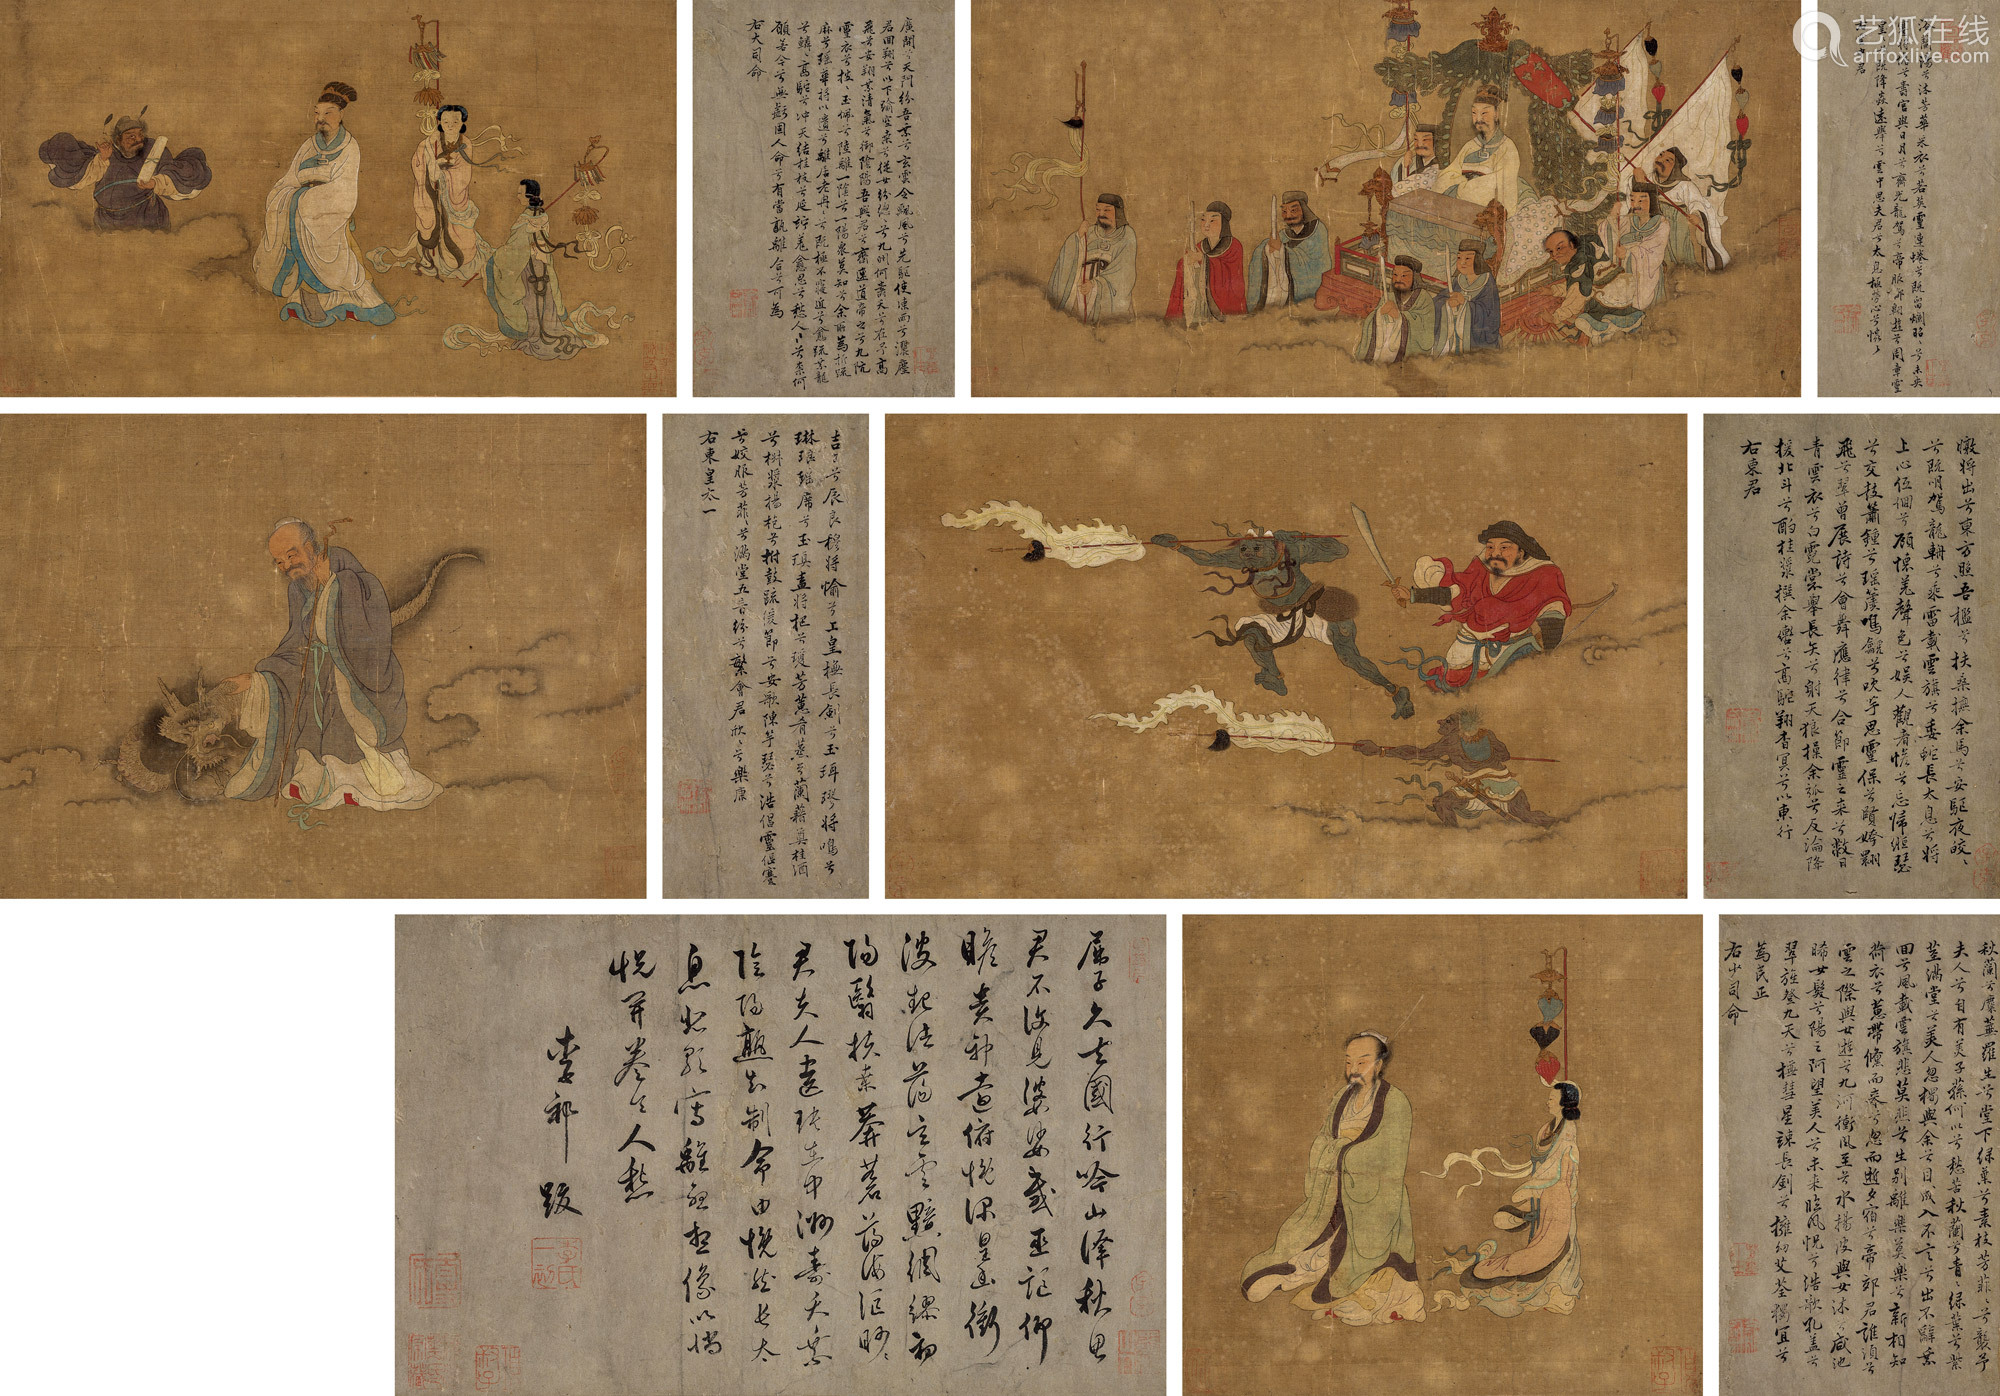 廣開兮天門紛吾乘兮玄雲令飄風兮先驅使涷雨兮灑塵
君回翔兮以下踰空桑兮從女紛總〻兮九州何壽夭兮在予高
飛兮安翔乘清氣兮御陰陽吾與君兮齋速道帝之兮九阬
靈衣兮披〻玉佩兮陸離一陰兮一陽衆莫知兮余所為折疏
麻兮瑤華將以遺兮離居老冉〻兮既極不寖近兮愈疏乘龍
兮轔〻高駝兮沖天結桂枝兮延竚羌愈思兮愁人〻兮柰何
願若今兮無虧固人命兮有當孰離合兮可為
右大司命
艺狐在线
artfoxlive.com
浴蘭湯兮沐芳華采衣兮若英靈連蜷兮既留爛昭〻兮未央
兮壽宮與日月兮齊光龍駕兮帝服聊翱遊兮周章靈
皇既降猋遠舉兮雲中思夫君兮太息極勞心兮忡〻
右君
吉日兮辰良穆將愉兮上皇撫長劍兮玉珥璆將鳴兮
琳琅瑤席兮玉瑱盍將把兮瓊芳蕙肴蒸兮蘭藉奠桂酒
兮椒漿揚枹兮拊鼓疏緩節兮安歌陳竽瑟兮浩倡靈偃蹇
兮姣服芳菲〻兮滿堂五音紛兮繁會君欣〻兮樂康
右東皇太一
暾將出兮東方照吾檻兮扶桑撫余馬兮安驅夜皎〻
兮既明駕龍輈兮乘雷載雲旗兮委蛇長太息兮將
上心低佪兮顧懷羌聲色兮娛人觀者憺兮忘歸緪瑟
兮交枝簫鍾兮瑤簴鳴兮吹竽思靈保兮賢姱翾
飛兮翠曾展詩兮會舞應律兮合節靈之來兮蔽日
青雲衣兮白霓裳舉長矢兮射天狼操余弧兮反淪降
援北斗兮酌桂漿撰余轡兮高駝翔杳冥兮以東行
右東君
屈子久去國行吟山澤秋思
君不復見婆娑感巫記仰
瞻衆神遊俯慨深衝
波起浩蕩玄雲黯綢繆初
陽翳扶桒莽蒼蕩海眇〻
君夫人遠在中洲壽夭乘
陰陽孰知制命由恍然長太
息寫離想像以惝
怳開卷令人愁
李祁跋
秋蘭兮麋蕪羅生兮堂下綠葉兮素枝芳菲〻兮襲予
夫人兮自有美子蓀何以兮愁苦秋蘭兮青〻綠葉兮紫
莖滿堂兮美人忽獨與余兮目成入不言兮出不辭乘
回兮風載雲旗悲莫悲兮生別離樂莫樂兮新相知
荷衣兮蕙帶儵而來兮忽而逝夕宿兮帝郊君誰須兮
雲之際與女遊兮九河衝風至兮水揚波與女沐兮咸池
晞女髮兮陽之阿望美人兮未來臨風怳兮浩歌孔蓋兮
翠旌登九天兮撫彗星竦長劍兮擁幼艾荃獨宜兮
為民正
右少司命